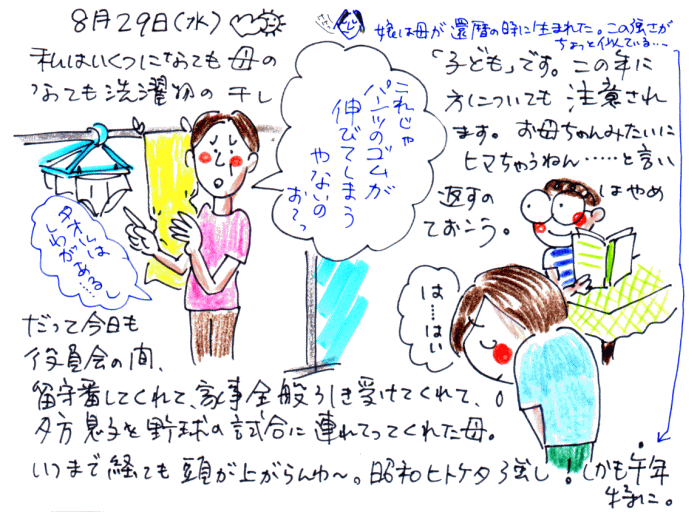 8月29日(水)
娘は母が還暦の時に生まれた。この強さが
ちょっと似ている…。
私はいくつになっても母の
「子ども」です。この年に
なっても洗濯物の干し
方についても注意され
ます。お母ちゃんみたいに
ヒマちゃうねん……と言い
返すのはやめ
ておこう。
これじゃ
パンツのゴムが
伸びてしまう
やないの
お〜っ
タオルは
しわがあるし
……
は…はい
だって今日も
役員会の間、
留守番してくれて、家事全般引き受けてくれて、
夕方息子を野球の試合に連れてってくれた母。
いつまで経っても頭が上がらんわ〜。昭和ヒトケタ強し!しかも午年
特に。